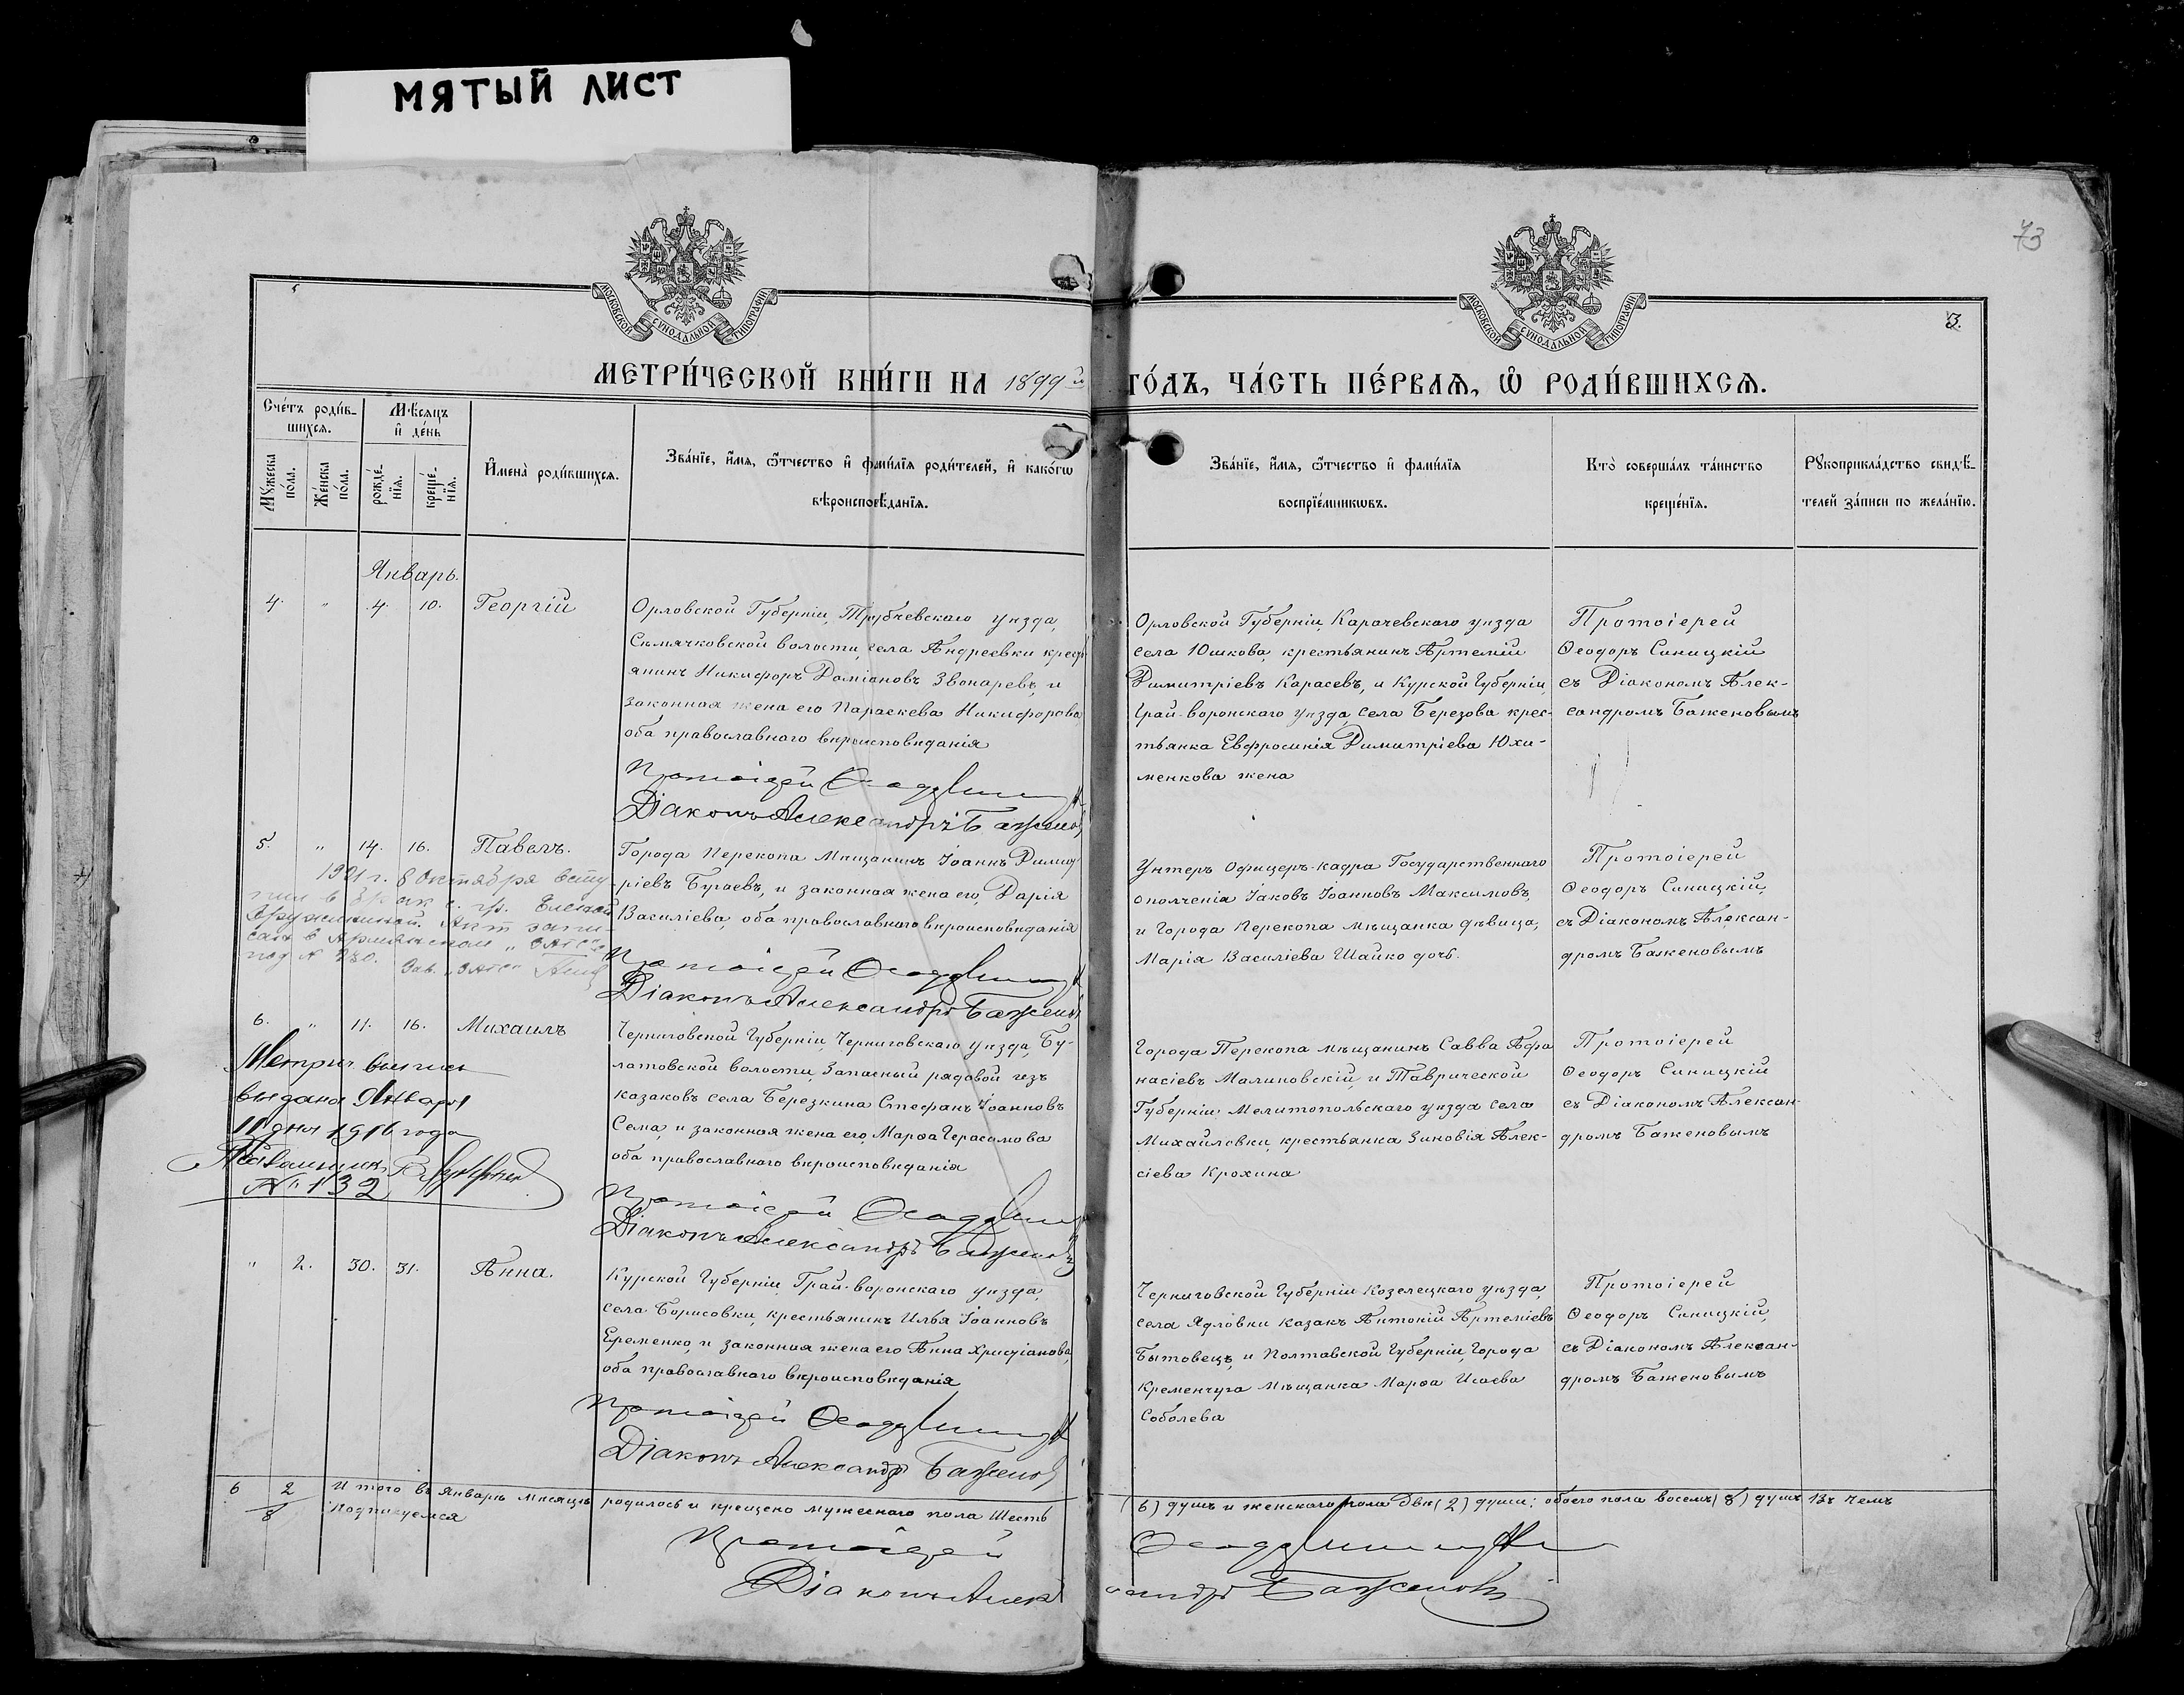 МЯТЫЙ ЛИСТ
73
МОСКОВСКОЙ СУНОДАЛЬНОЙ ТИПОГРАФІИ
МОСКОВСКОЙ СУНОДАЛЬНОЙ ТИПОГРАФІИ
3.
МЕТРИ́ЧЕСКОЙ КНИ́ГИ НА 1899й ГО́ДЪ, ЧА́СТЬ ПЕ́РВАѦ, Ѽ РОДИ́ВШИХСѦ.
Сче́тъ роди́в-
шихсѧ.
Мꙋ́жеска по́ла.
Же́нска по́ла.
Мѣ́сѧцъ
и҆ де́нь
рожде́-нїѧ.
креще́-нїѧ.
И҆мена̀ роди́вшихсѧ.
Зва́нїе, и҆́мѧ, ѻ҆́тчество и҆ фами́лїѧ роди́телей, и҆ како́гѡ
вѣроисповѣ́данїѧ.
Зва́нїе, и҆́мѧ, ѻ҆́тчество и҆ фами́лїѧ
воспрїе́мникѡвъ.
Кто̀ соверша́лъ та́инство
креще́нїѧ.
Рꙋкоприкла́дство свидѣ́-
телей за́писи по жела́нїю.
Январь.
4. " 4. 10. Георгій
Орловской Губерніи, Трубчевскаго уѣзда,
Семячковской волости, села Андреевки крест-
янинъ Никифоръ Даміановъ Звонаревъ, и
законная жена его Параскева Никифорова
оба православнаго вѣроисповѣданія
Протоіерей Ѳеодоръ Синицкій
Діаконъ Александръ Баженовъ
Орловской Губерніи, Карачевскаго уѣзда
села Юшкова, крестьянинъ Артемій
Димитріевъ Карасевъ, и Курской Губерніи,
Грай-воронскаго уѣзда, села Березова крес-
тьянка Евфросинія Димитріева Юхи-
менкова жена
Протоіерей
Ѳеодоръ Синицкій
съ Діакономъ Алек-
сандромъ Баженовымъ
5. " 14. 16. Павелъ.
1921 г. 8 Октября всту
пил в брак с гр. Еленой
Дружининой. Акт запи-
сан в Армянском "ЗАГС"е
под № 280.
Зав. "ЗАГС"
Города Перекопа Мѣщанинъ Іоаннъ Димит-
ріевъ Бугаевъ, и законная жена его, Дарія
Василіева, оба православнаго вѣроисповѣданія
Протоіерей Ѳеодоръ Синицкій
Діаконъ Александръ Баженовъ
Унтеръ Офицеръ-кадра Государственнаго
ополченія Іаковъ Іоанновъ Максимовъ,
и Города Перекопа Мѣщанка дѣвица,
Марія Василіева Шайко дочь.
Протоіерей
Ѳеодоръ Синицкій,
съ Діакономъ Алексан-
дромъ Баженовымъ
6. " 11. 16. Михаилъ
Метрич выпись
выдана Января
11 дня 1916 года
№ 132
Черниговской Губерніи, Черниговскаго уѣзда, Бу-
латовской волости, Запасный рядовой изъ
казаковъ села Березкина Стефанъ Іоанновъ
Сема, и законная жена его, Марѳа Герасимова
оба православнаго вѣроисповѣданія
Протоіерей Ѳеодоръ Синицкій
Діаконъ Александръ Баженовъ
Города Перекопа мѣщанинъ Савва Афа
насіевъ Малиновскій, и Таврической
Губерніи, Мелитопольскаго уѣзда села
Михайловки, крестьянка Зиновія Алек-
сіева Крохина
Протоіерей
Ѳеодоръ Синицкій
съ Діакономъ Алексан-
дромъ Баженовымъ
" 2. 30. 31. Анна.
Курской Губерніи, Грай-воронскаго уѣзда,
села Борисовки, крестьянинъ Илья Іоанновъ
Еременко, и законная жена его Анна Христіанова,
оба православнаго вѣроисповѣданія
Протоіерей Ѳеодоръ Синицкій
Діаконъ Александръ Баженовъ
Черниговской Губерніи Козелецкаго уѣзда,
села Ядловки казакъ Антоній Артеміевъ
Бытовецъ, и Полтавской Губерніи, Города
Кременчуга Мѣщанка Марѳа Исаева
Соболева
Протоіерей
Ѳеодоръ Синицкій,
съ Діакономъ Алексан-
дромъ Баженовымъ
6 2 Итого въ Январѣ мѣсяцѣ родилось и крещено мужескаго пола Шесть (6) душъ и женскаго пола Двѣ (2) души; обоего пола восемь (8) душъ Въ чемъ
8 Подписуемся
Протоіерей Ѳеодоръ Синицкій
Діаконъ Александръ Баженовъ